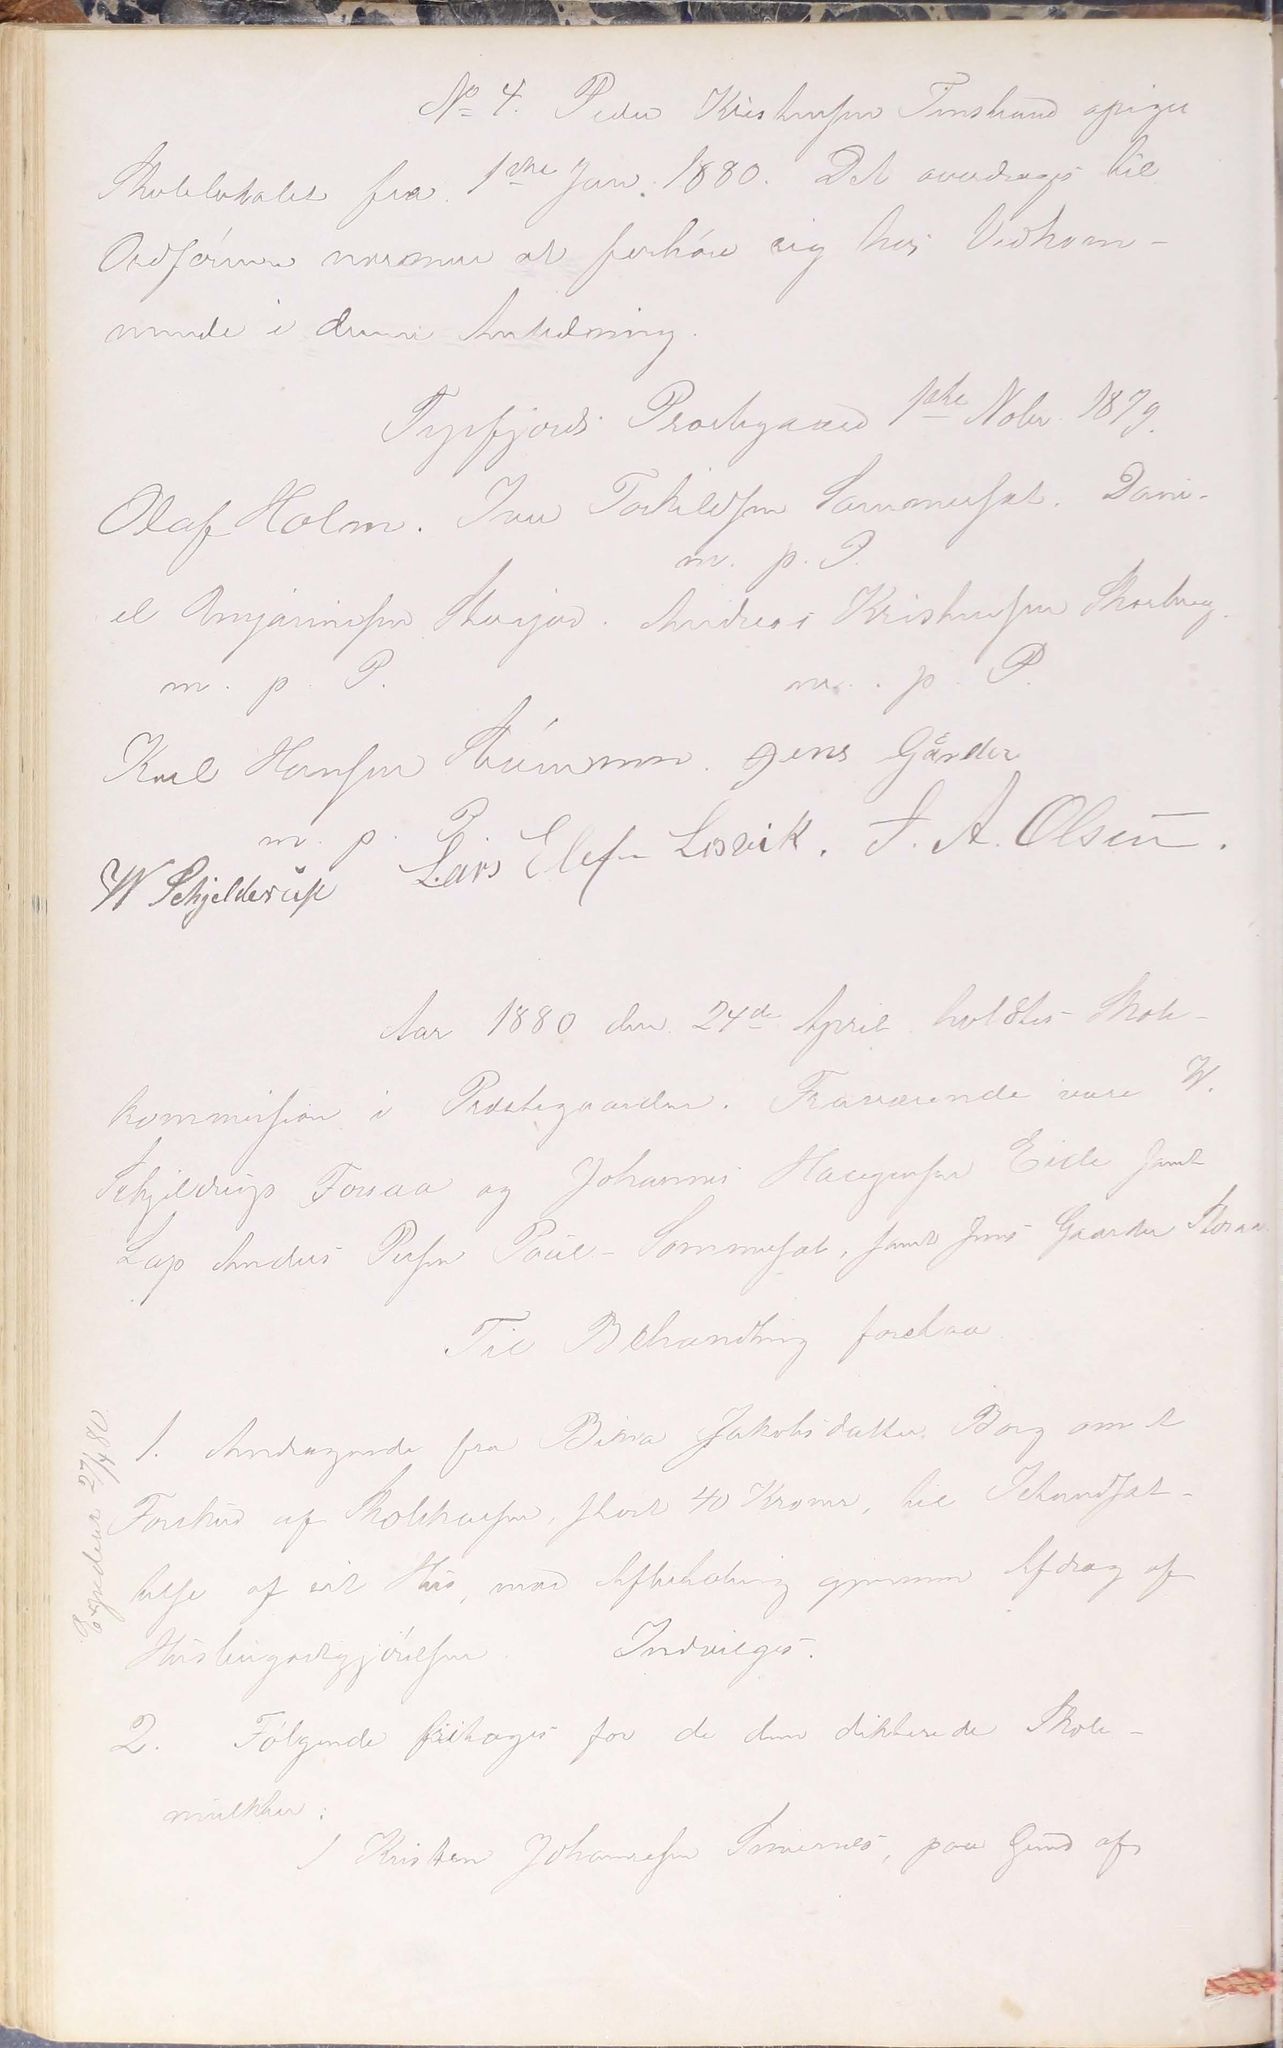 No 4. Peder Kristensen Finstrand opsiger
Skolelokalet fra 1ste Jan. 1880. Det overdrages til
Ordføreren nærmere at forhøre sig hos Vedkom-
mende i denne Anledning.
Tysfjords Præstegaard 1ste Nobr. 1879.
Olaf Holm. Iver Torkildsen Sommerset. Dani-
m. p. P.
el Arnjørinesen Storjord. Andreas Kristensen Skarberg.
m. p. P. m. p. P.
Karl Hansen Stunmen. Jens Gårder
m. p. P.
Lars Elefsn Losvik. J. A. Olsen.
W Schjelderup
Aar 1880 den 24de April holdtes Skole-
kommission i Præstegaarden. Fraværende vare W.
Schjelderup Forsaa og Johannes Haagensen Eide samt
Lap Anders Persen Paul-Sommerset, samt Jens Gaarder Storaa
Til Behandling forelaa
Expederet 27/4 80.
1. Andragende fra Jakobsdatter Borg om et
Forskud af Skolekassen, stort 40 Kroner, til Istandsæt-
telse af sit Hus, mod Afbetaling gjennem Afdrag af
Husleiegodtgjørelsen Indvilges.
2. Følgende fritages for de dem dikterede Skole-
mulkter:
1 Kristen Johannesen, paa Grund af